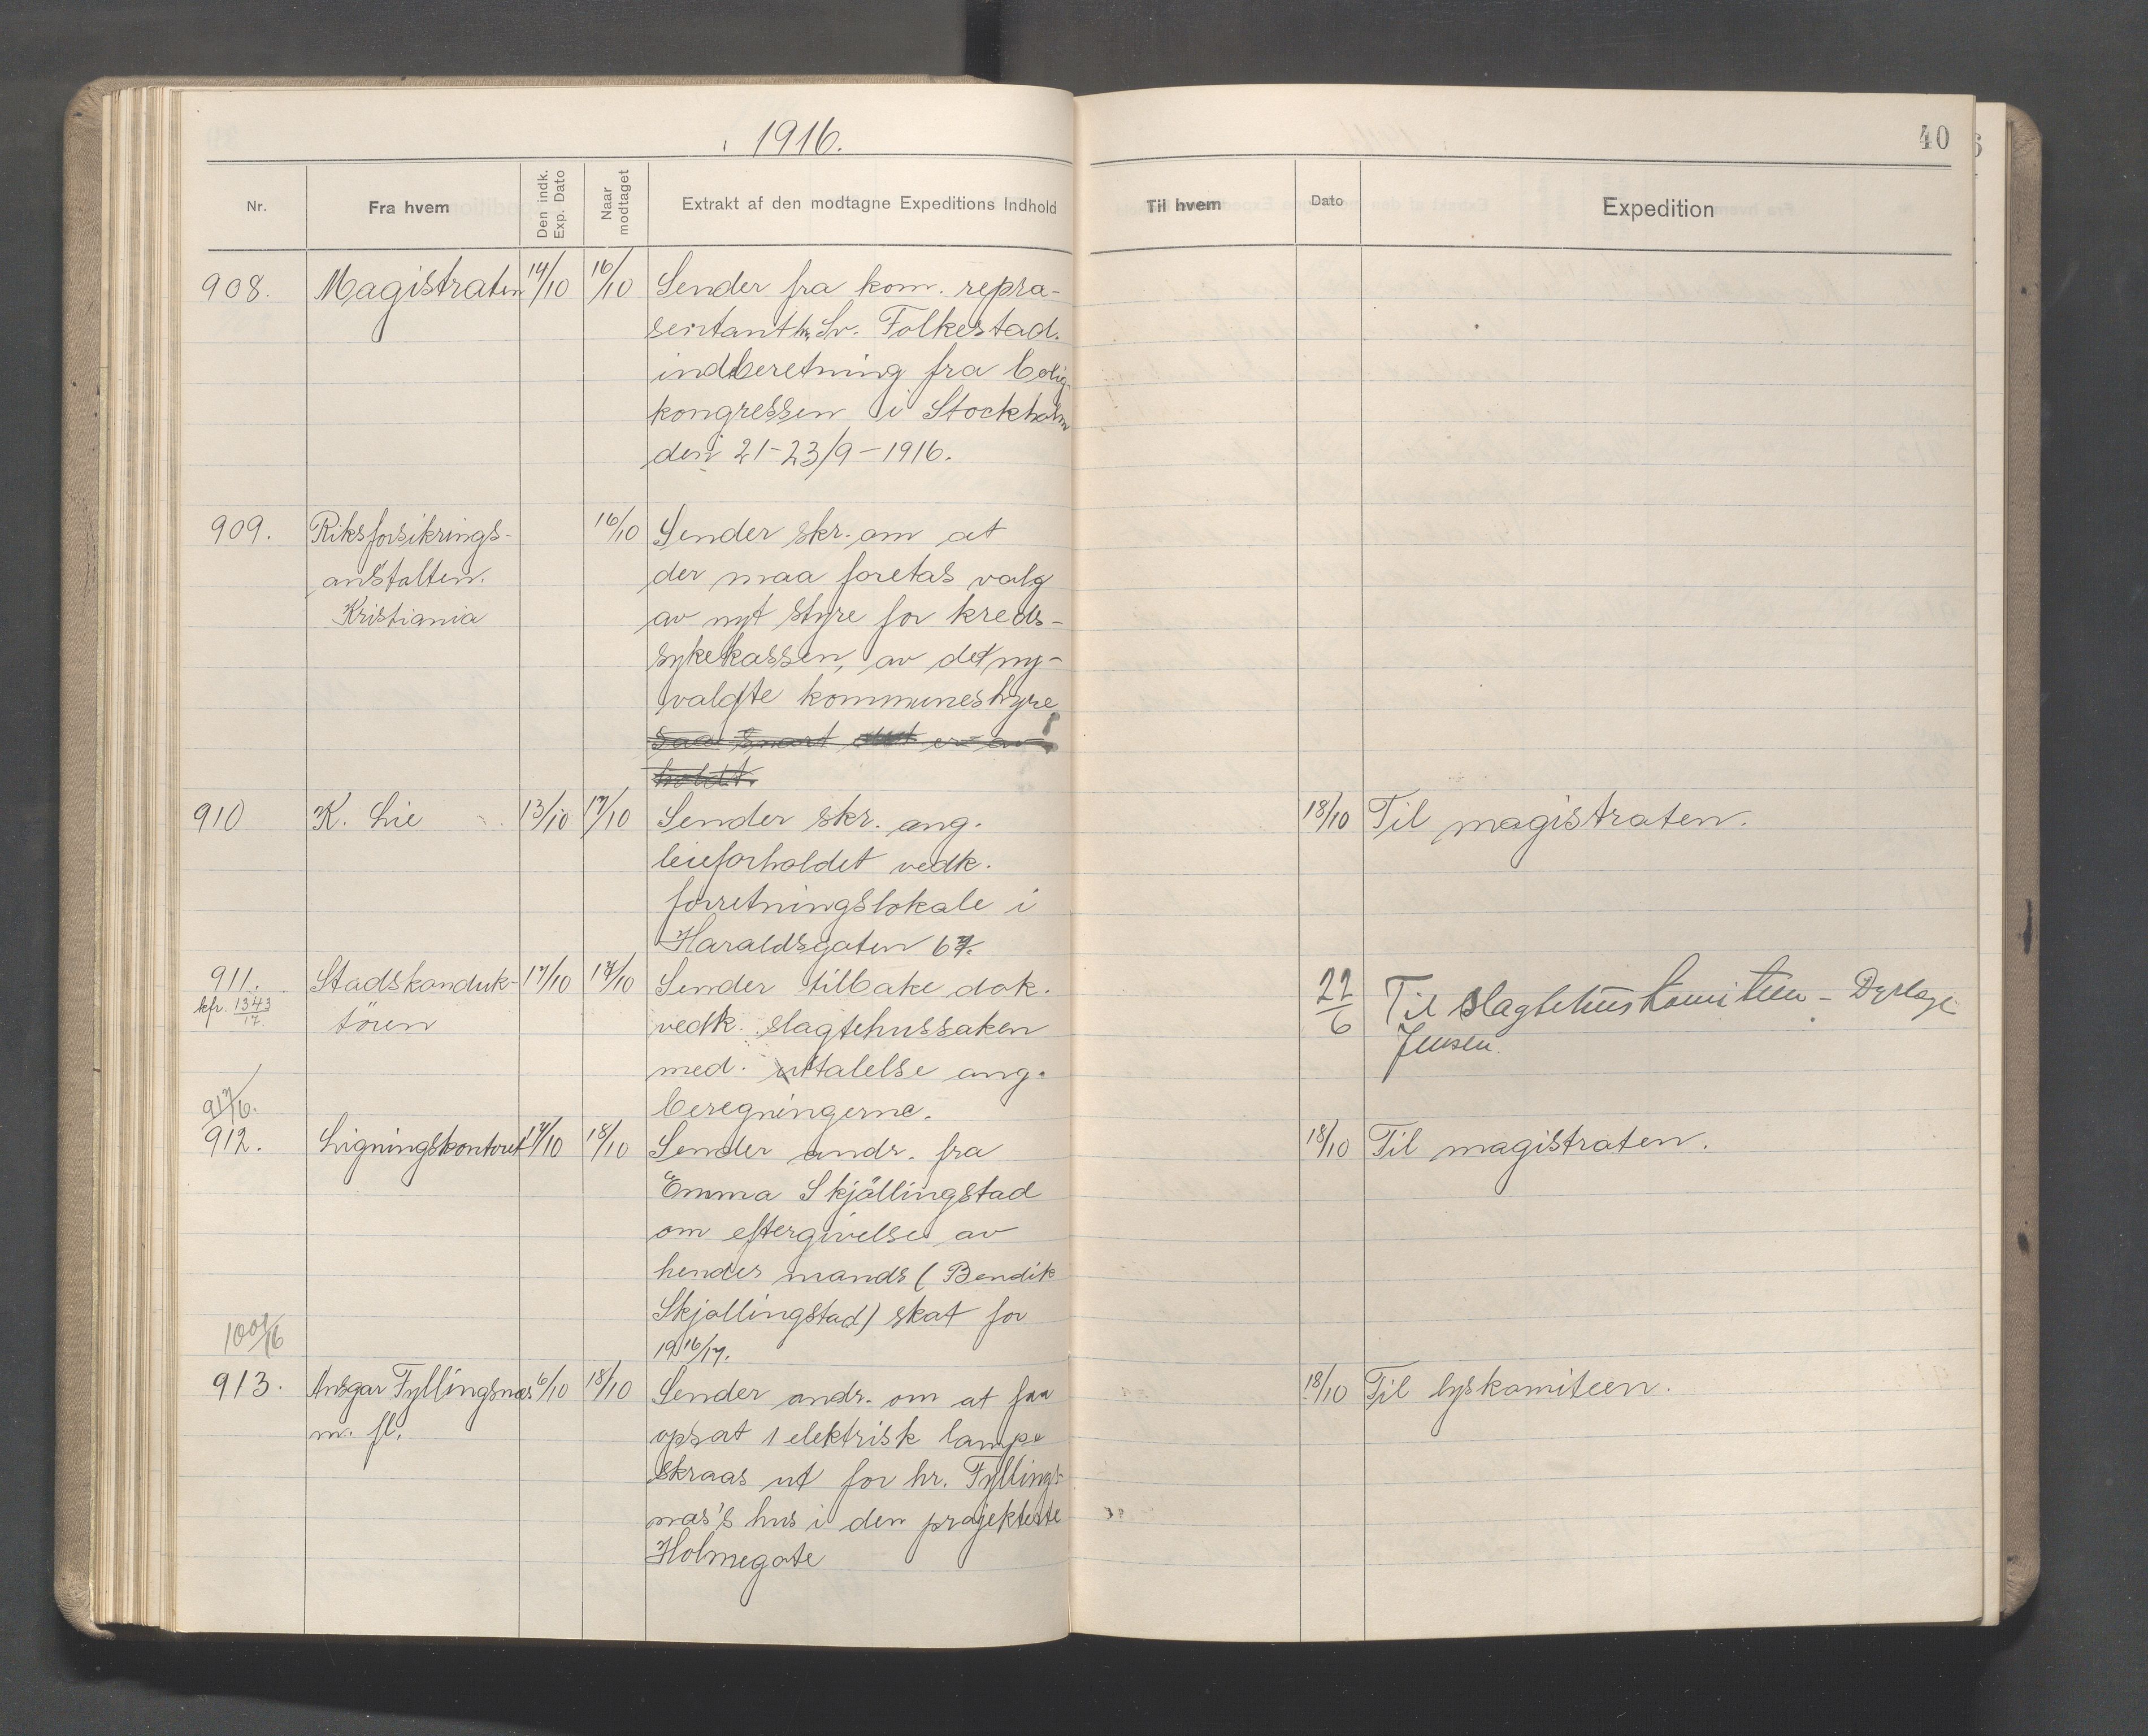 1916.
40
Nr.
Fra hvem
Den indk. Exp. Dato
Naar modtaget
Extrakt af den modtagne Expeditions Indhold
Til hvem
Dato
Expedition
908. Magistraten 14/10 16/10 Sender fra kom. repra-
sentant hr. Sv. Folkestad.
indberetning fra bolig-
kongressen i Stockholm
den 21-23/9-1916.
909. Riksforsikrings- 16/10 Sender skr. om at
anstalten. der maa foretas valg
Kristiania av nyt styre for kreds-
sykekassen, av det ny-
valgte kommunestyre
saa snart det er av
holdt.
910 K. Lie 13/10 17/10 Sender skr. ang. 18/10 Til magistraten.
leieforholdet vedk.
forretningslokale i
Haraldsgaten 67.
911. Stadskonduk- 17/10 17/10 Sender tilbake dok. 22/6 Til slagtehuskomiteen - Dyrlæge
kfr. 1343/17. tören vedk. slagtehussaken Jensen.
med. uttalelse ang.
beregningerne.
917/6.
912. Ligningskontoret 17/10 18/10 Sender andr. fra 18/10 Til magistraten.
Emma Skjöllingstad
om eftergivelse av
hendes mands (Bendik
Skjollingstad) skat for
1916/17.
1001/16
913. Ansgar Fyllingsnæs 6/10 18/10 Sender andr. om at faa 18/10 Til lyskomiteen.
m. fl. opsat 1 elektrisk lampe
skraas ut for hr. Fyllings-
næs's hus i den projekterte
Holmegate